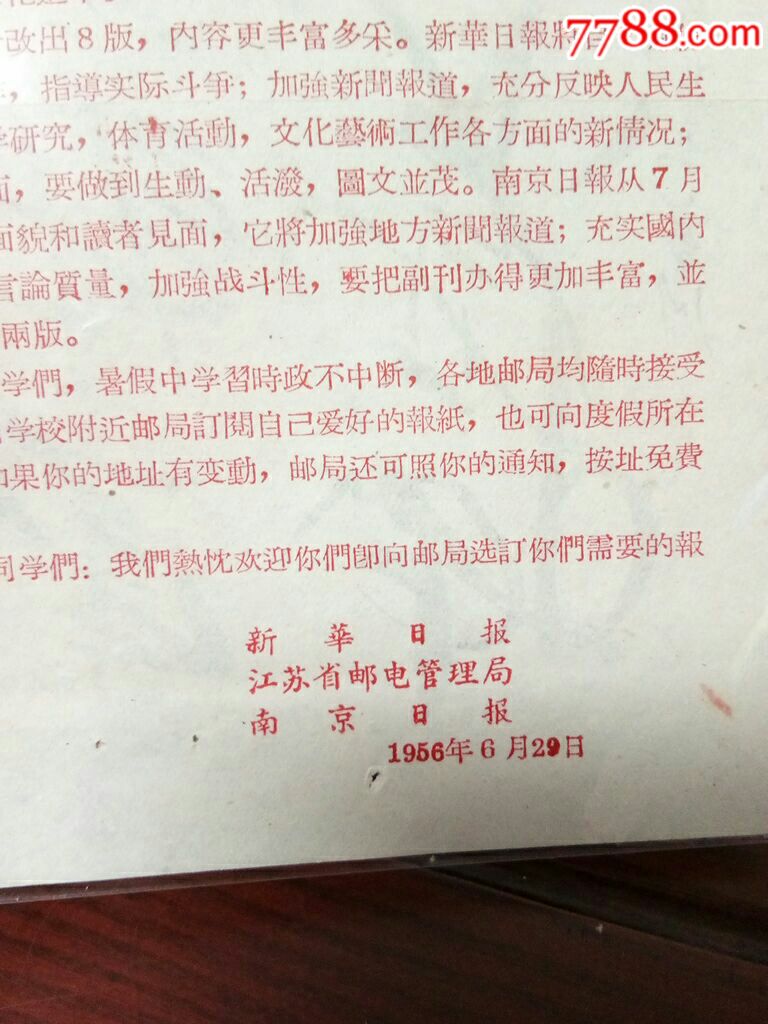 7788.com
改出8版，内容更丰富多采。新華日報將
，指導实际斗爭；加強新聞報道，充分反映人民生
研究，体育活動，文化藝術工作各方面的新情况；
面，要做到生動、活潑，圖文並茂。南京日報从7月
面貌和讀者見面，它將加強地方新聞報道；充实國内
言論質量，加強战斗性，要把副刊办得更加丰富，並
兩版。
学們，暑假中学習時政不中断，各地邮局均隨時接受
学校附近邮局訂閱自己爱好的報紙，也可向度假所在
如果你的地址有变動，邮局还可照你的通知，按址免費
同学們：我們熱忱欢迎你們卽向邮局选訂你們需要的報
新華日报
江苏省邮电管理局
南京日报
1956年6月29日